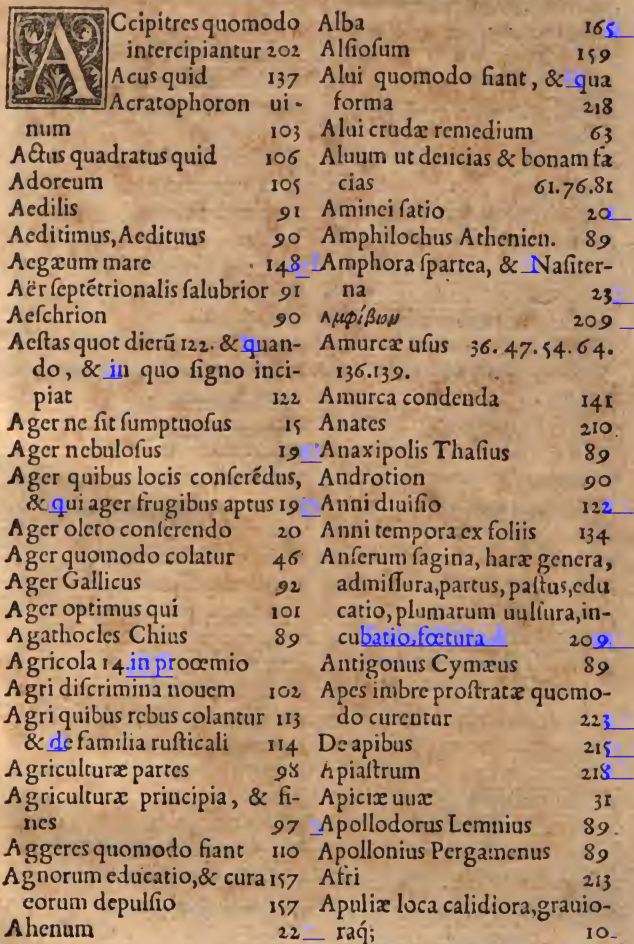 ACcipitres quomodo
intercipiantur 202
Acus quid 137
Acratophoron ui-
num 103
Actus quadratus quid 106
Adoreum 105
Aedilis 91
Aeditimus, Aedituus 90
Aegæum mare 148
Aër ſeptētrionalis ſalubrior 91
Aeſchrion 90
Aeſtas quot dierū 122. & quan-
do, & in quo ſigno inci-
piat 122
Ager ne ſit ſumptuoſus 15
Ager nebuloſus 19
Ager quibus locis conſerēdus,
& qui ager frugibus aptus 19
Ager oleto conſerendo 20
Ager quomodo colatur 46
Ager Gallicus 92
Ager optimus qui 101
Agathocles Chius 89
Agricola 14. in proœmio
Agri diſcrimina nouem 102
Agri quibus rebus colantur 113
& de familia ruſticali 114
Agriculturæ partes 98
Agriculturæ principia, & fi-
nes 97
Aggeres quomodo fiant 110
Agnorum educatio, & cura 157
eorum depulſio 157
Ahenum 22
Alba 165
Alſioſum 159
Alui quomodo fiant, & qua
forma 218
Alui crudæ remedium 63
Aluum ut deiicias & bonam fa
cias 61.76.81
Aminei ſatio 20
Amphilochus Athenien. 89
Amphora ſpartea, & Naſiter-
na 23
Αμφίβιων 209
Amurcæ uſus 36.47.54.64.
136.139.
Amurca condenda 141
Anates 210
Anaxipolis Thaſius 89
Androtion 90
Anni diuiſio 122
Anni tempora ex foliis 134
Anſerum ſagina, haræ genera,
admiſſura, partus, paſtus, edu
catio, plumarum uulſura, in-
cubatio, fœtura 209
Antigonus Cymæus 89
Apes imbre proſtratæ quomo-
do curentur 223
De apibus 215
Apiaſtrum 218
Apiciæ uuæ 31
Apollodorus Lemnius 89.
Apollonius Pergamenus 89
Afri 213
Apuliæ loca calidiora, grauio-
raq; 10